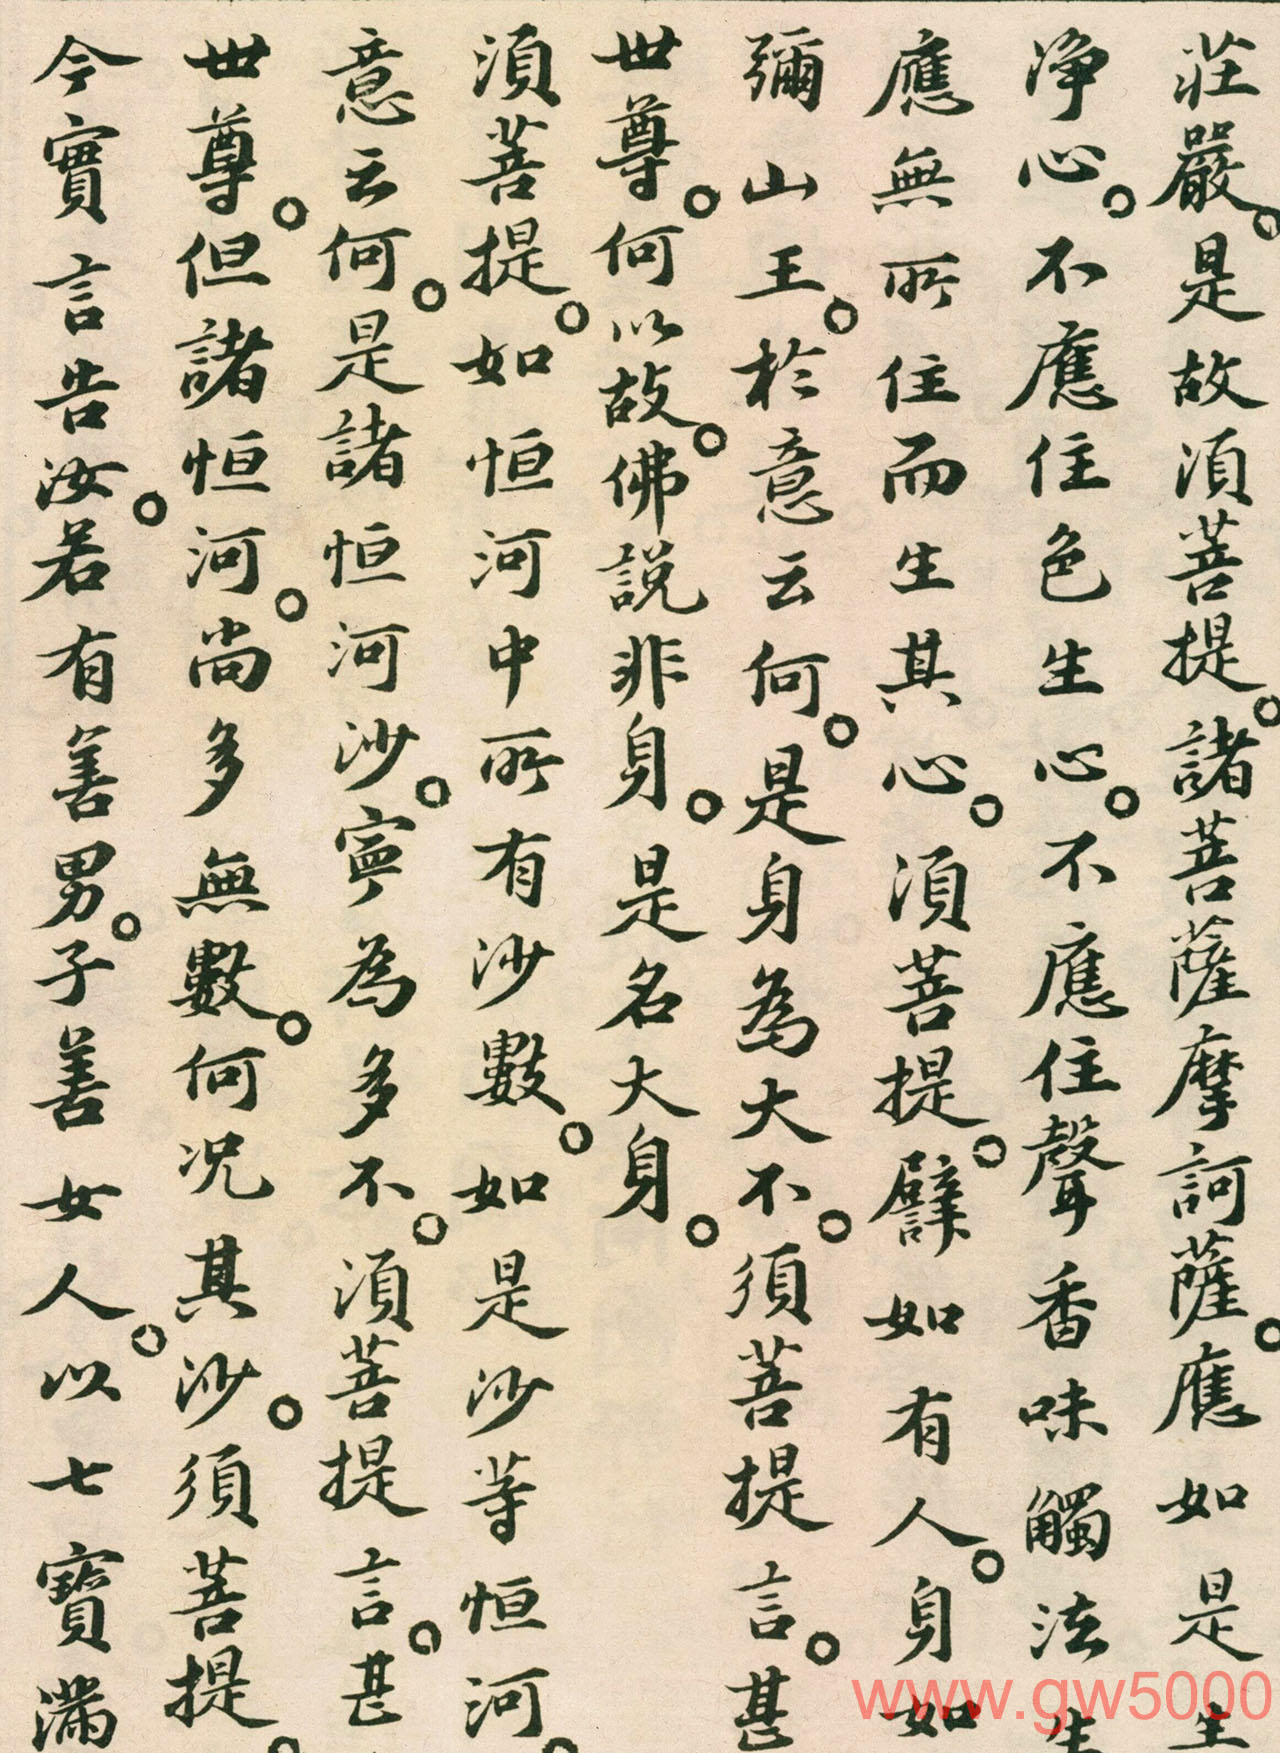 莊嚴。是故須菩提。諸菩薩摩訶薩。應如是生
淨心。不應住色生心。不應住聲香味觸法生
應無所住而生其心。須菩提。譬如有人。身如
彌山王。於意云何。是身為大不。須菩提言。甚
世尊。何以故。佛說非身。是名大身。
須菩提。如恒河中所有沙數。如是沙等恒河。
意云何。是諸恒河沙。寧為多不。須菩提言。甚
世尊。但諸恒河。尚多無數。何況其沙。須菩提。
今實言告汝。若有善男。子善女人。以七寶滿
www.gw5000